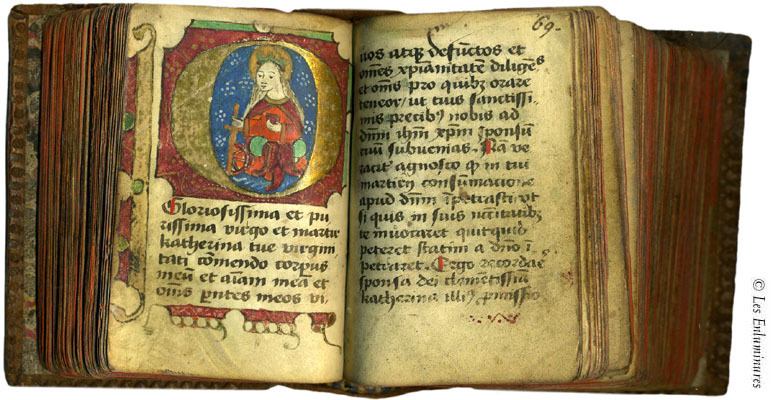 Gloriosissima et pu
rissima virgo et martir
katherina tue virgini
tati comendo corpus
meū et aīam meā et
om̄s parētes meos vi
69.
uos atqꝫ defūctos et
om̄es xp̄ianitatē diligēs
et om̄s pro quibꝫ orare
teneor / ut tuis sanctissi
mis precibꝰ nobis ad
dn̄m ihm̄ xp̄m sponsū
tuū subuenias. Nā ve
raciter agnosco qꝫ in tui
martirii consumacione
apud dn̄m īpetrasti vt
si quis in suis nccītatibꝫ
te inuocaret quitquid
peteret statim a dn̄o ī
petraret. Ergo recordae
sponsa dei clementissīa
katherina illiꝰ
© Les Enluminures